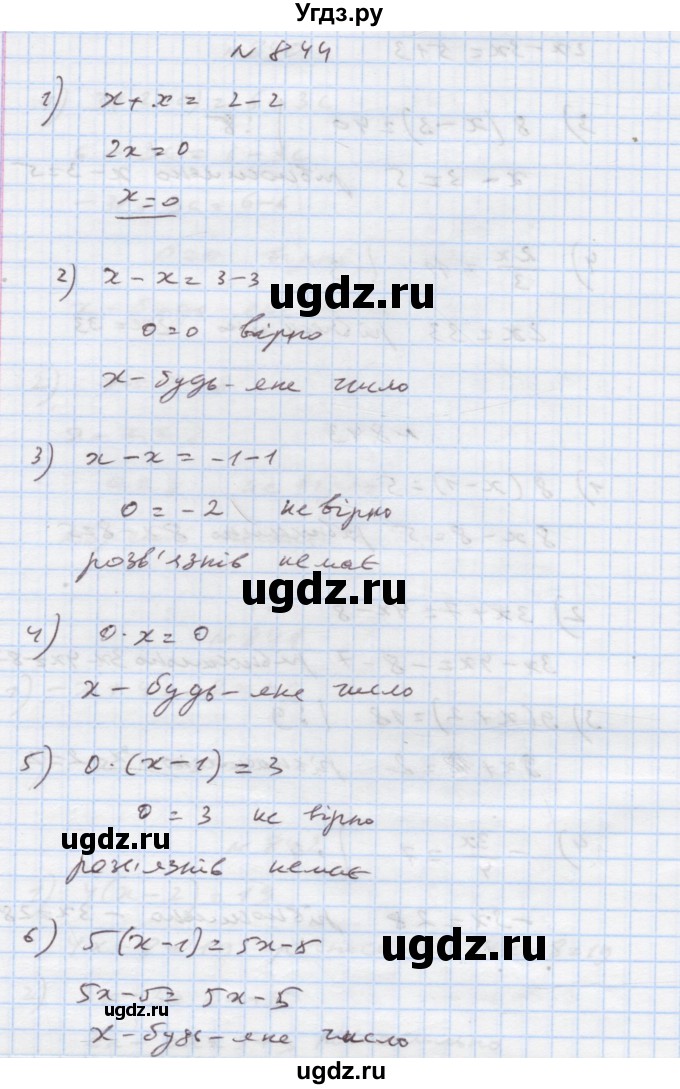 Угдз.ру
N 844
1) x+x= 2-2
2x=0
x=0
2) x-x=3-3
ugdz.ru
0=0 вірно
x-будь-яке число
3) x-x=-1-1
0=-2 не вірно
розв'язків немає
ugdz.ru
4) 0·x=0
x-будь-яке число
ugdz.ru
5) 0·(x-1)=3
0=3 не вірно
ugdz.ru
розв'язків немає
6) 5(x-1)=5x-5
ugdz.ru
5x-5=5x-5
ugdz.ru
x-будь-яке число
ugdz.ru